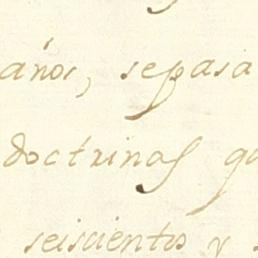 años, sepasa
doctrinas qu
seiscientos y